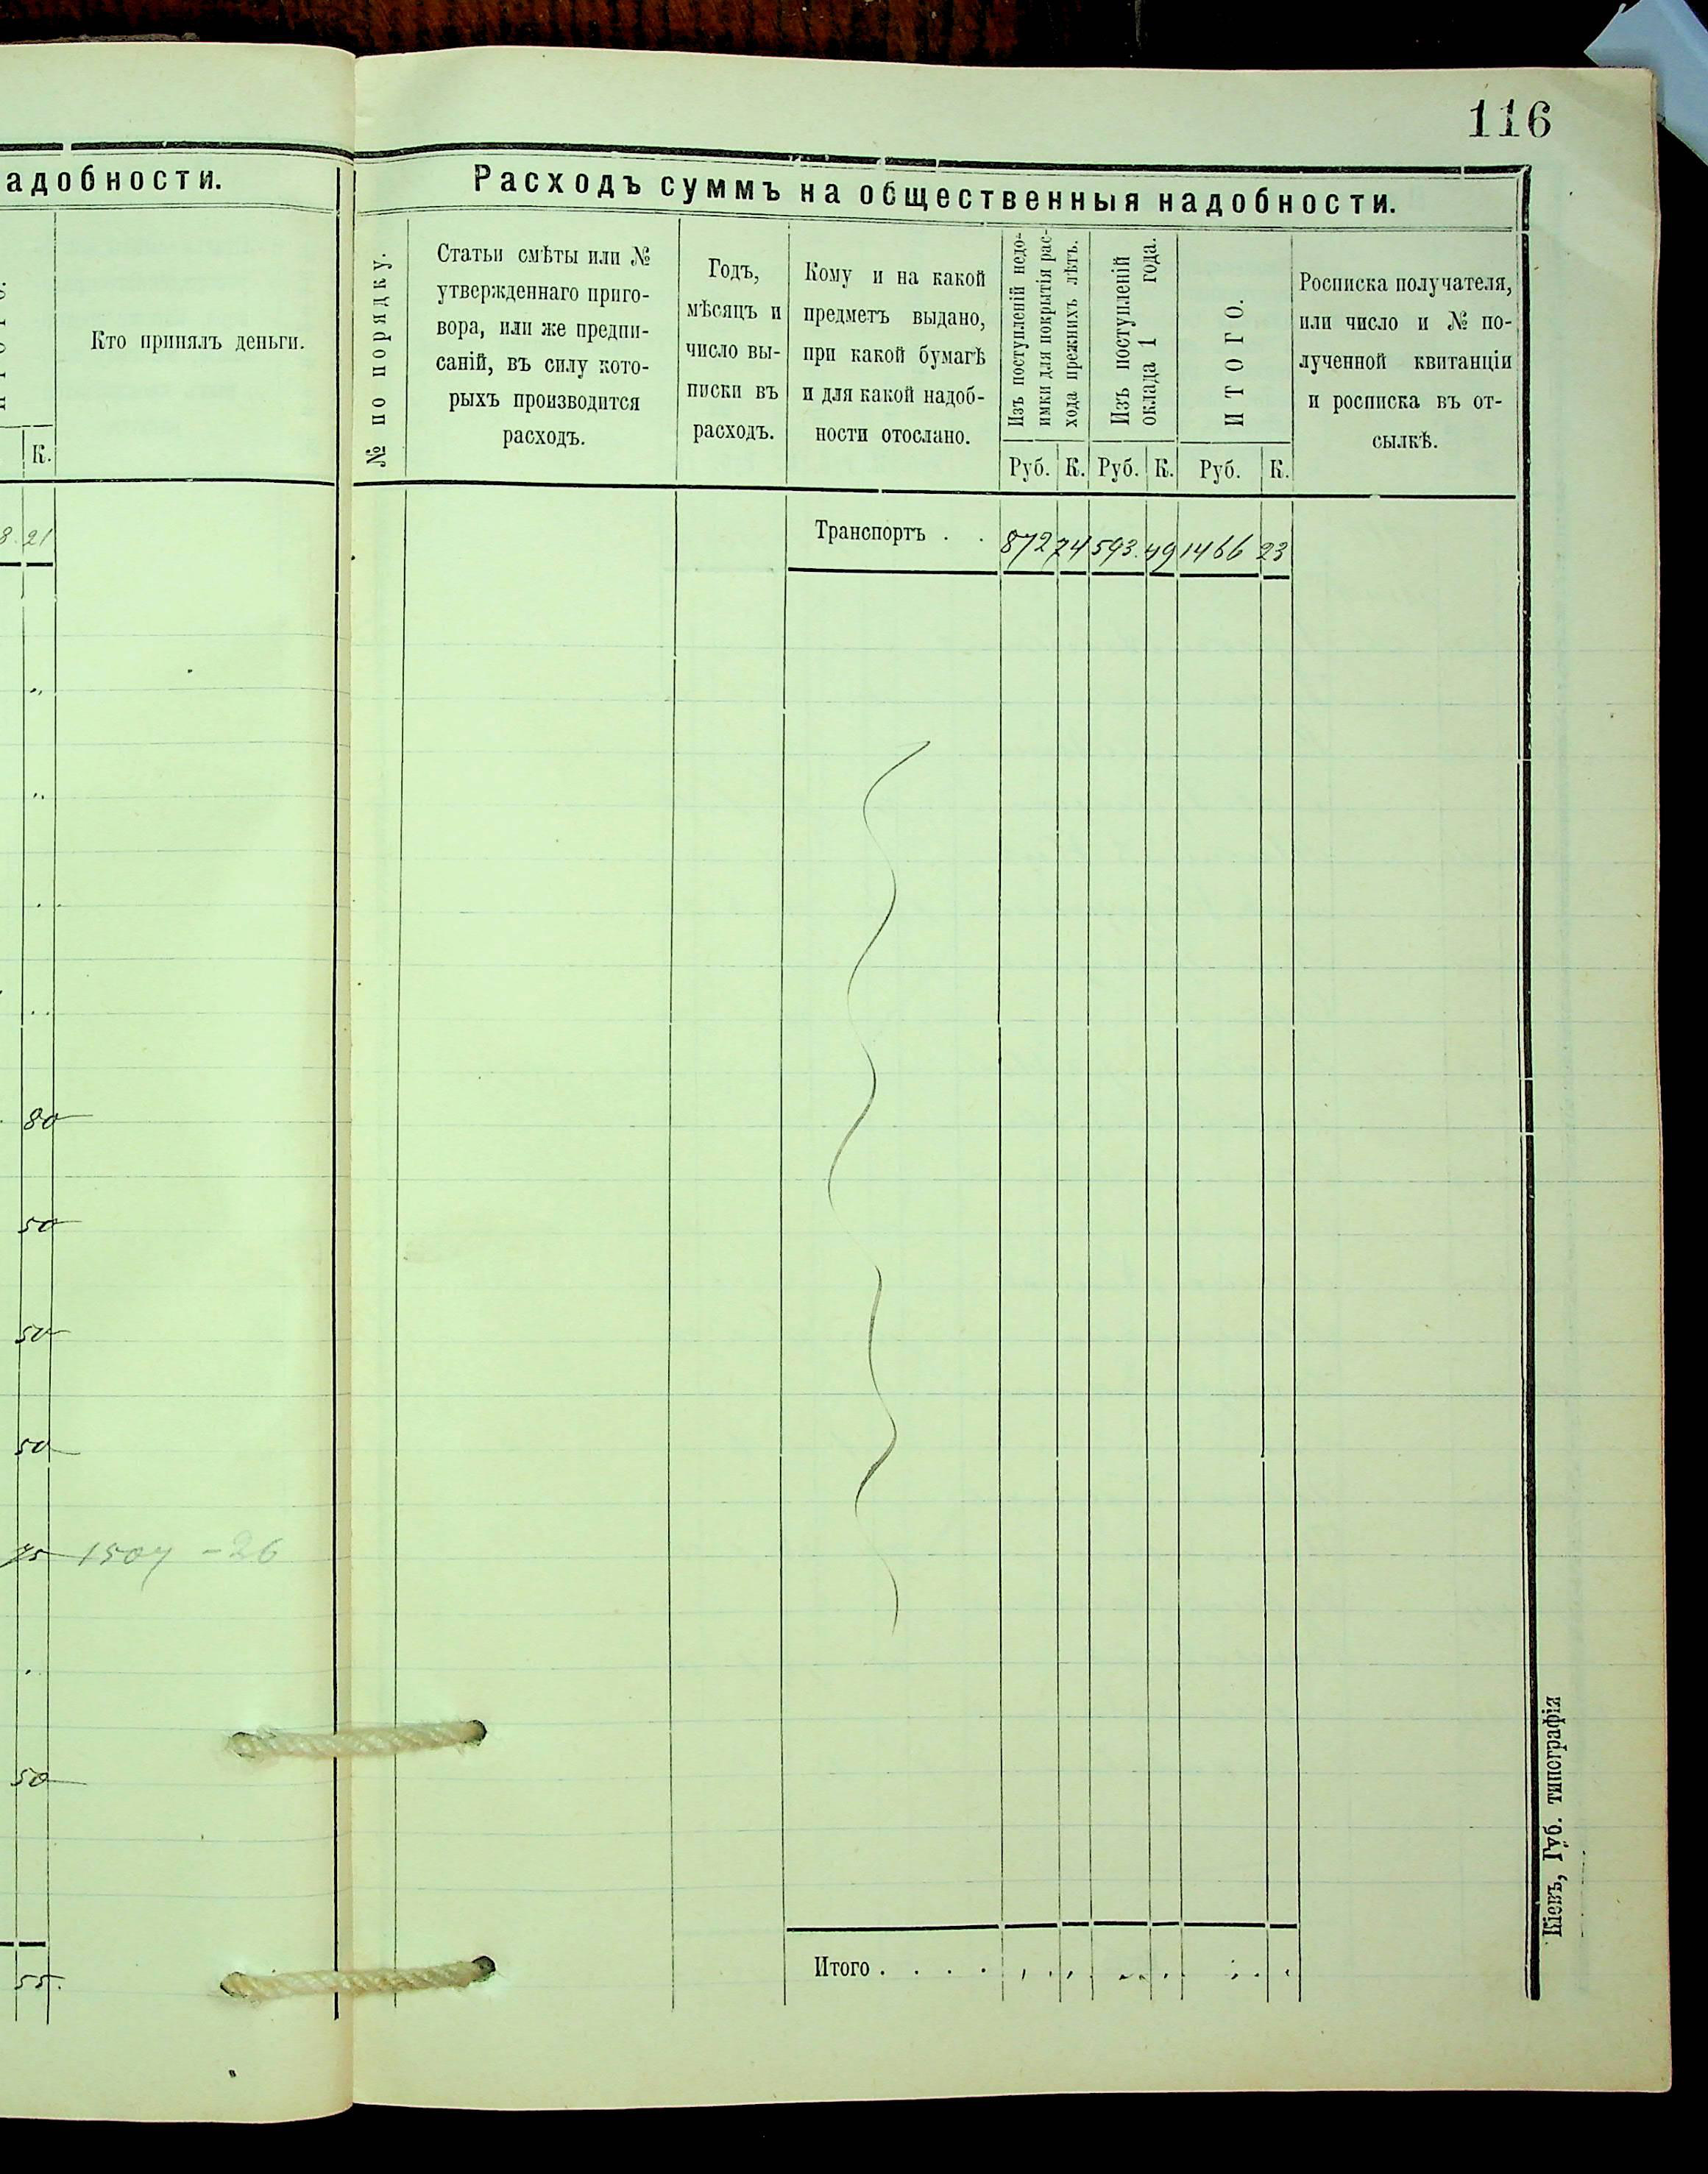 116
адобности.
К.
Кто принялъ деньги.
8. 21
80
50
50
50
75 1507 - 26
50
55.
Расходъ суммъ на общественныя надобности.
№ по порядку.
Статьи смѣты или №
утвержденнаго приго-
вора, или же предпи-
саній, въ силу кото-
рыхъ производится
расходъ.
Годъ,
мѣсяцъ и
число вы-
писки въ
расходъ.
Кому и на какой
предметъ выдано,
при какой бумагѣ
и для какой надоб-
ности отослано.
Изъ поступленій недо-
имки для покрытія рас-
хода прежнихъ лѣтъ.
Изъ поступленій
оклада 1 года.
ИТОГО.
Росписка получателя,
или число и № по-
лученной квитанціи
и росписка въ от-
сылкѣ.
Руб. К. Руб. К. Руб. К.
Транспортъ . . 872 74 593. 49 1466 23
Итого . . . .
Кіевъ, Губ. типографія